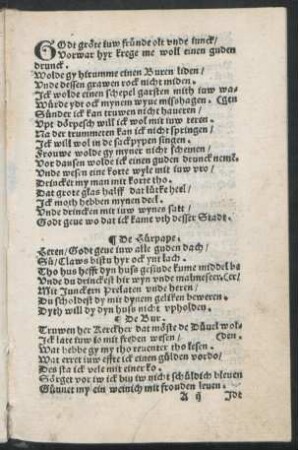 GOdt gröte iuw fründe olt vnde iunck/
Vorwar hyr krege me woll einen guden
drunck.
Wolde gy hirumme einen Buren liden/
Vnde dessen grawen rock nicht miden.
Ick wolde einen schepel garsten mith iuw wa⸗
Würde ydt ock mynem wyue misshagen. (gen
Sünder ick kan truwen nicht haueren/
Vpt dörpesch will ick wol mit iuw teren.
Na der trummeten kan ick nicht springen/
Ick will wol in de sackpypen singen.
Frouwe wolde gy myner nicht schemen/
Vor dansen wolde ick einen guden drunck neme.
Vnde wesen eine korte wyle mit iuw vro/
Drincket my man mit korte tho.
Dat grote glas halff dat lütke heel/
Ick moth hebben mynen deel.
Vnde drincken mit iuw wynes satt/
Godt geue wo dat ick kame vth desser Stadt.
¶ De Lürpape.
Heren/Godt geue iuw alle guden dach/
Sü/Claws bistu hyr ock ynt lach.
Tho hus hefft dyn huss gesinde kume middel ba
Vnde du drinckest hir wyn vnde malmeseer.(er/
Mit Junckern Prelaten vnde heren/
Du scholdest dy mit dynem geliken beweren.
Dyth will dy dyn huss nicht vpholden.
¶ De Bur.
Truwen her Kerckher dat möste de Düuel wol⸗
Ick late iuw io mit freden wesen/ (den.
Wat hebbe gy my tho reuenter tho lesen.
Wat erret iuw effte ick einen gülden vordo/
Des sta ick vele mit einer ko.
Sörget vor iw ick bin iw nicht schüldich bleuen
Günnet my ein weinich mit frouden leuen.
A ij Idt